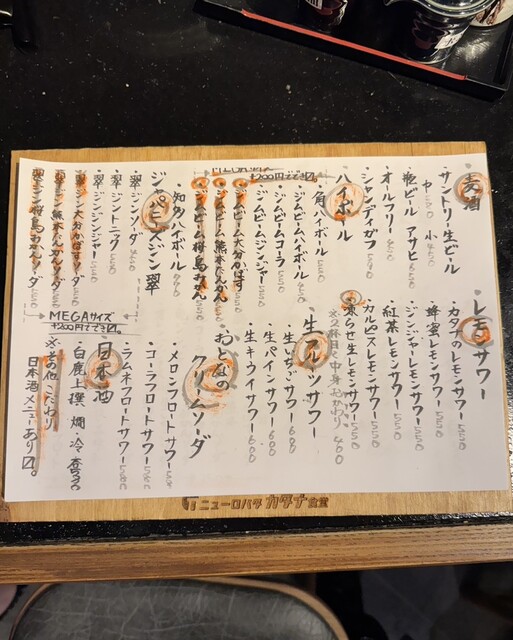 麦酒
・サントリー生ビール
中 520 小 450
・瓶ビール アサヒ 620
・オールフリー 450
・シャンディガフ 590
ハイボール
MEGAサイズ +200円でできます
・角ハイボール 550
・ジムビームハイボール 450
・ジムビームコーラ 550
・ジムビームジンジャー 550
・ジムビーム大分かぼす 550
・ジムビーム熊本だんかん 550
・ジムビーム桜島みかん 550
・知多ハイボール 990
ジャパニーズジン翠
・翠ジンソーダ 450
・翠ジントニック 550
・翠ジンジンジャー 550
・翠ジン大分かぼすソーダ 550
・翠ジン熊本だんかんソーダ 550
・翠ジン桜島みかんソーダ 550
MEGAサイズ
+200円でできます
レモンサワー
・カタナのレモンサワー 550
・蜂蜜レモンサワー 550
・ジンジャーレモンサワー 550
・紅茶レモンサワー 550
・カルピスレモンサワー 550
・凍らせ生レモンサワー 550
※2杯目〜中身おかわり 400
生フルーツサワー
・生いちごサワー 600
・生パインサワー 600
・生キウイサワー 600
おとなの
クリームソーダ
・メロンフロートサワー 580
・コーラフロートサワー 580
・ラムネフロートサワー 580
日本酒
・白鹿上撰 燗 冷 各530
※その他こだわり
日本酒メニューあり〼。
ニューロバタ カタナ 食堂